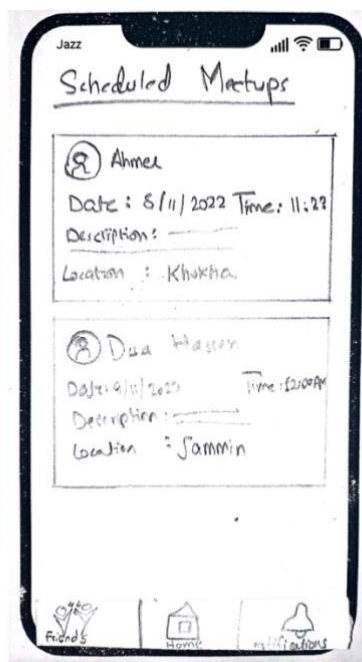 Jazz
Scheduled Meetups
Ahmer
Date : 8/11/2022 Time: 11:22
Description:
Location : Khokha
Dua Hassan
Date: 9/11/2022 Time: 12:00 AM
Description:
Location : Jammin
Friends Home notifications